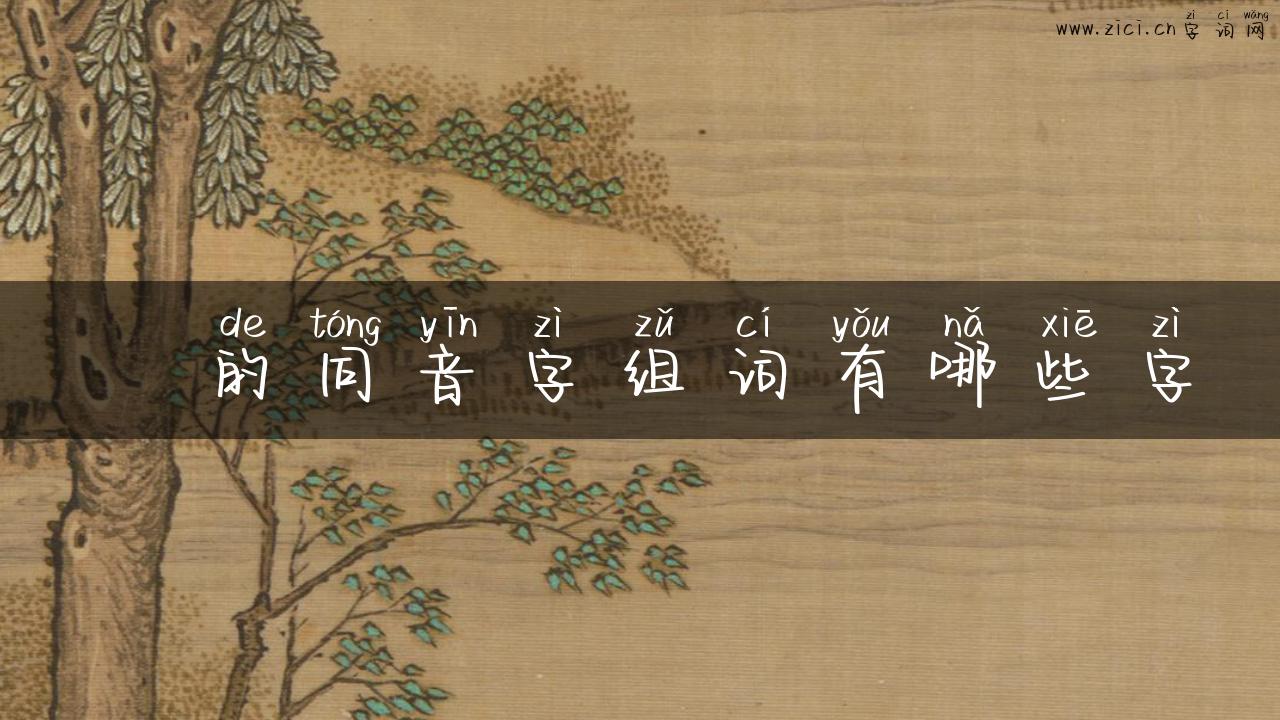 zì cí wǎng
www.zici.cn 字词网
de tóng yīn zì zǔ cí yǒu nǎ xiē zì
的同音字组词有哪些字